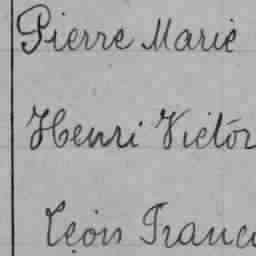 Pierre Marie
Henri Victor
Léon Franc